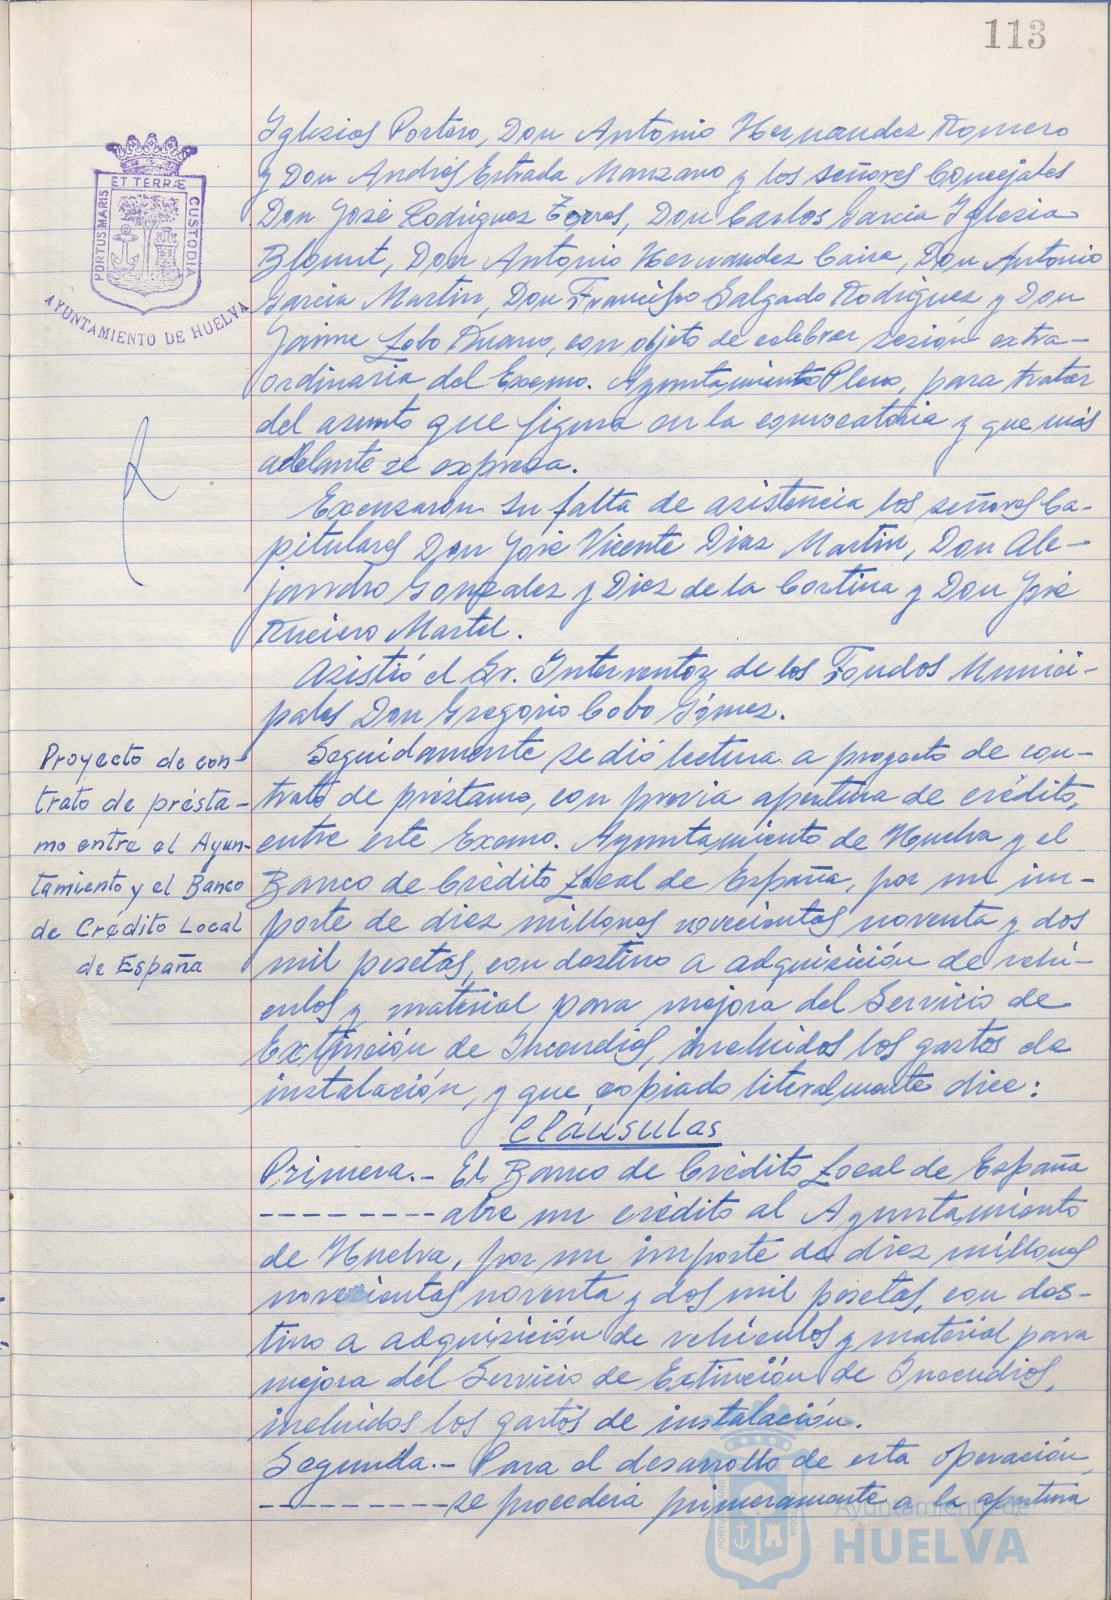 113
Iglesias Portero, Don Antonio Hernandez Romero
y Don Andrés Estrada Manzano y los señores Concejales
Don José Rodriguez Torres, Don Carlos Garcia Iglesia
Blount, Don Antonio Hernandez Caire, Don Antonio
Garcia Martin, Don Francisco Salgado Rodriguez y Don
Jaime Lobo, con objeto de celebrar sesión extra-
ordinaria del Excmo. Ayuntamiento Pleno, para tratar
del asunto que figura en la convocatoria y que más
adelante se expresa.
Excusaron su falta de asistencia los señores Ca-
pitulares Don José Vicente Diaz Martin, Don Ale-
jandro Gonzalez y Diez de la Cortina y Don José
Ruciero Martel.
Asistió el Sr. Interventor de los Fondos Munici-
pales Don Gregorio Cobo Gómez.
Proyecto de con-
trato de présta-
mo entre el Ayun-
tamiento y el Banco
de Crédito Local
de España
Seguidamente se dió lectura a proyecto de con-
trato de préstamo, con previa apertura de crédito,
entre este Excmo. Ayuntamiento de Huelva y el
Banco de Crédito Local de España, por un im-
porte de diez millones novecientas noventa y dos
mil pesetas, con destino a adquisición de vehí-
culos y material para mejora del Servicio de
Extinción de Incendios, incluidos los gastos de
instalación, y que copiado literalmente dice:
Cláusulas
Primera.- El Banco de Crédito Local de España
--------- abre un crédito al Ayuntamiento
de Huelva, por un importe de diez millones
novecientas noventa y dos mil pesetas, con des-
tino a adquisición de vehículos y material para
mejora del Servicio de Extinción de Incendios,
incluidos los gastos de instalación.
Segunda.- Para el desarrollo de esta operación,
--------- se procederá primeramente a la apertura
PORTUS MARIS ET TERRÆ CUSTODIA
AYUNTAMIENTO DE HUELVA
Ayuntamiento de
HUELVA